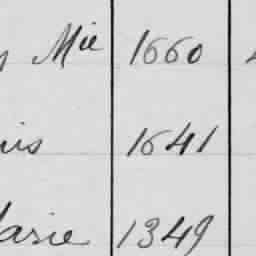 Mie 1660
is 1641
arie 1349